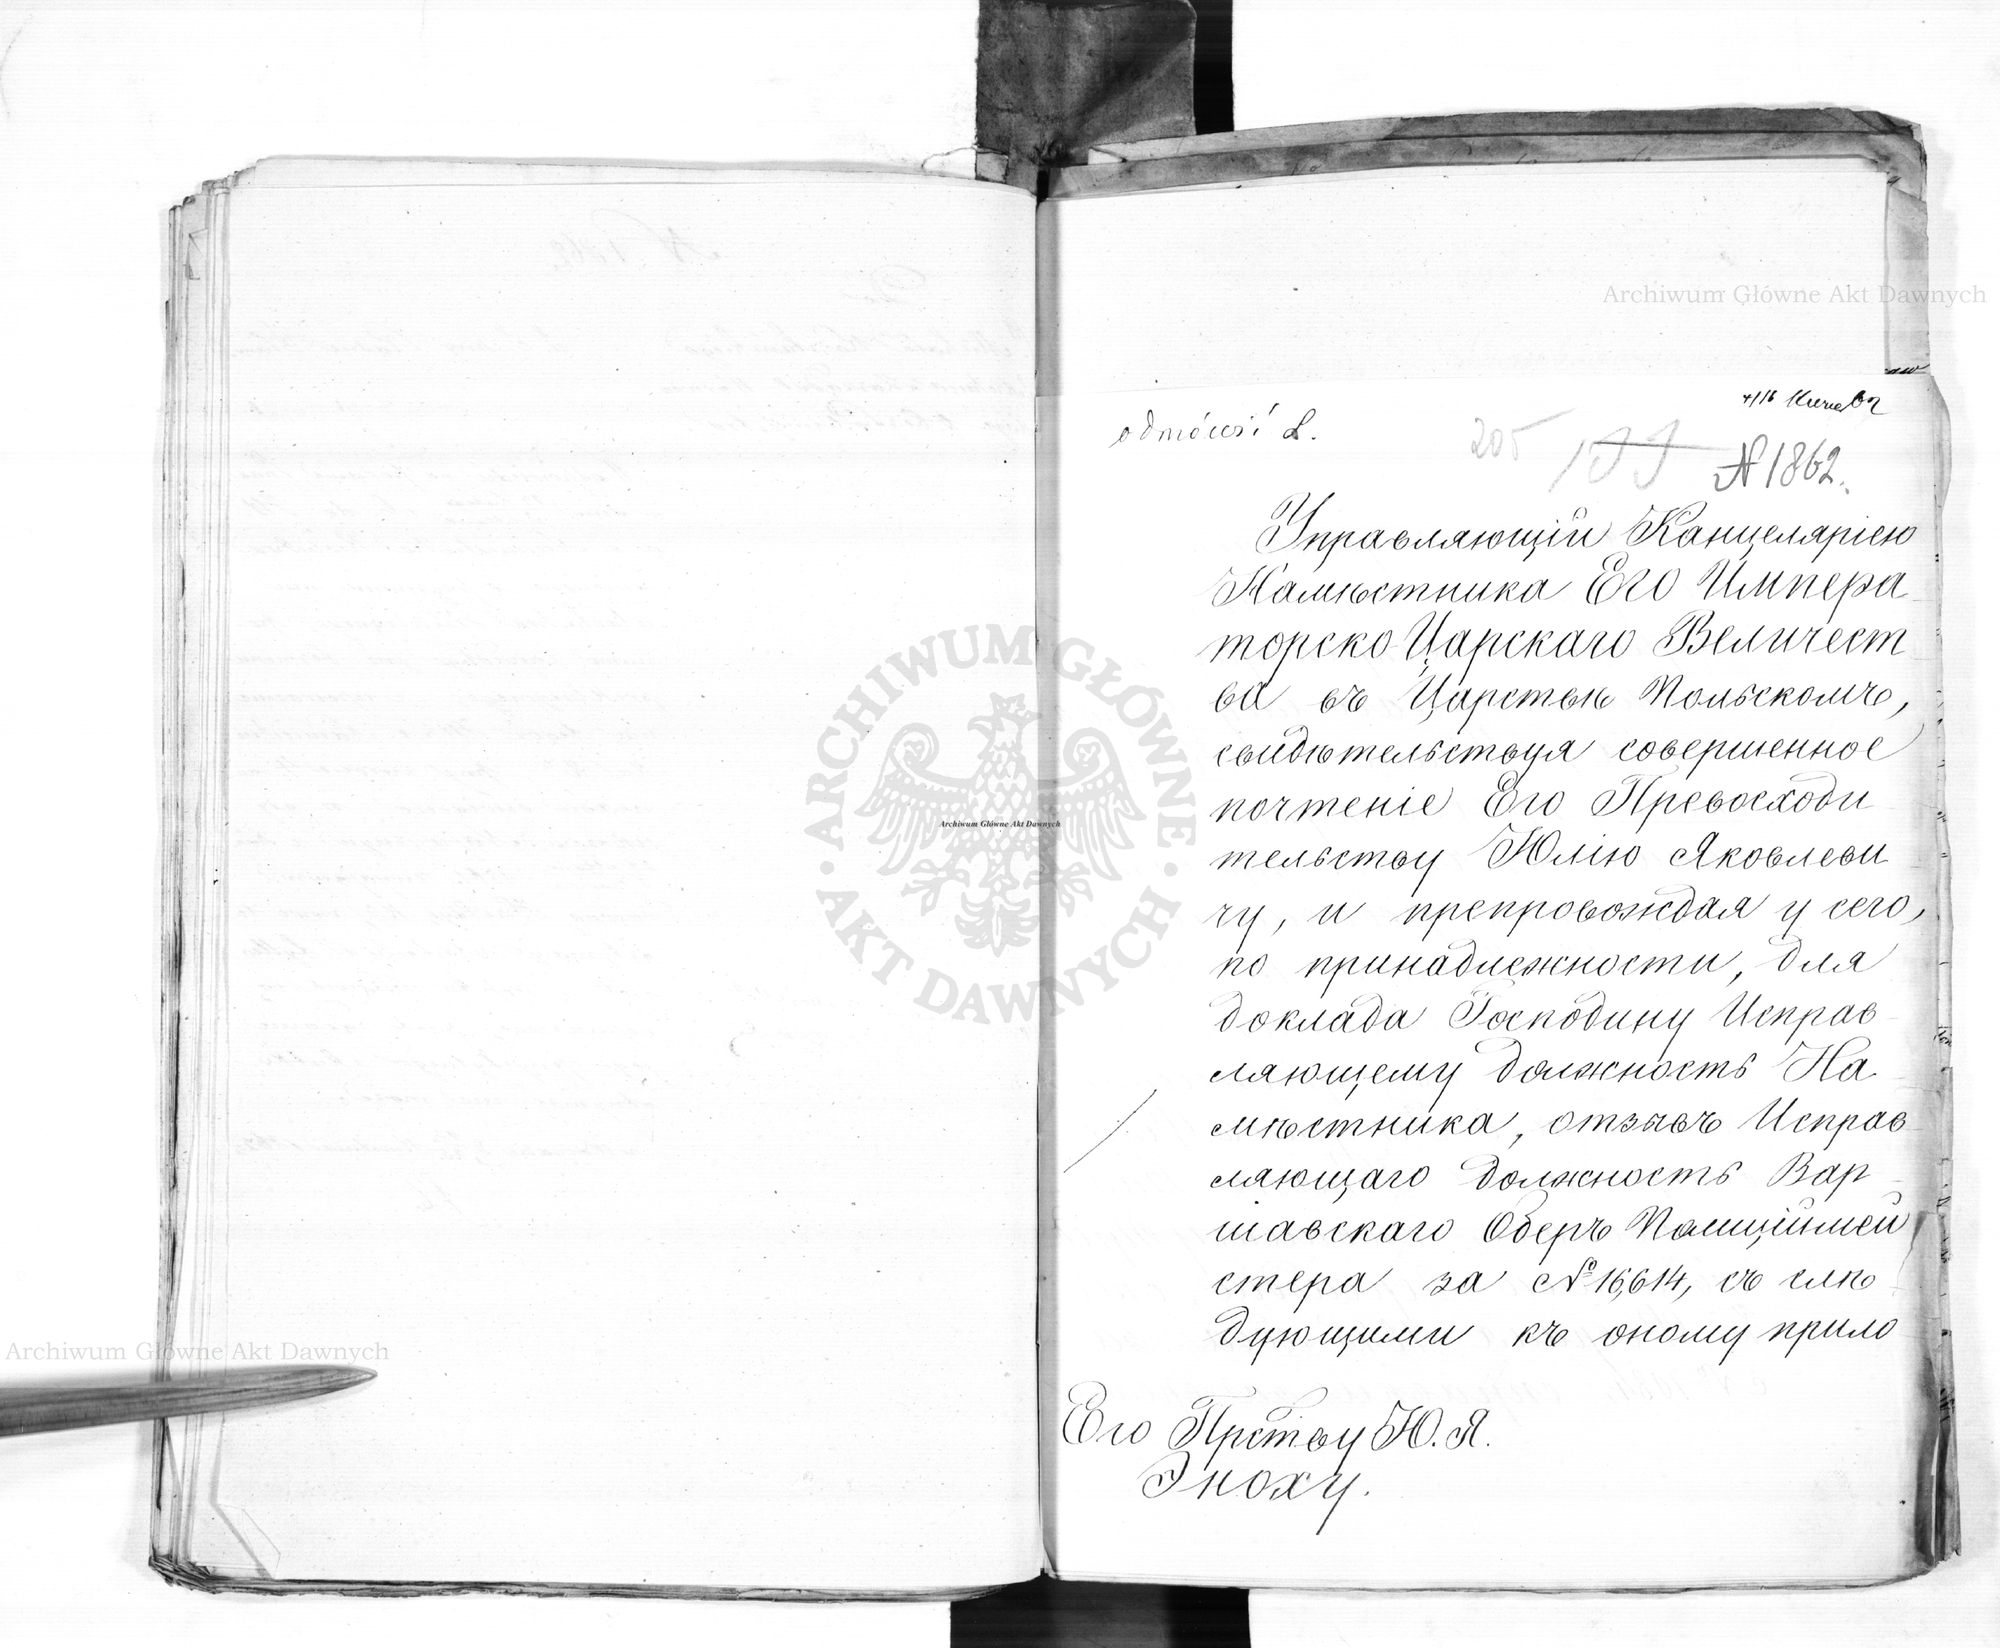 odmówić L.
205
N 1862.
Управляющій Канцеляріею
Намѣстника Его Импера
торско Царскаго Величест
ва въ Царствѣ Польскомъ,
свидѣтельствуя совершенное
почтеніе Его Превосходи
тельству Юлію Яковлеви
чу, и препровождая у сего,
по принадлежности, для
доклада Господину Исправ
ляющему должность На
мѣстника, отзывъ Исправ
ляющаго должность Вар
шавскаго Оберъ Полиціймей
стера за № 16,614, съ слѣ
дующими къ оному прило
Его Прству Ю. Я.
Эноху.
Archiwum Główne Akt Dawnych
Archiwum Główne Akt Dawnych
Archiwum Główne Akt Dawnych
ARCHIWUM GŁÓWNE AKT DAWNYCH